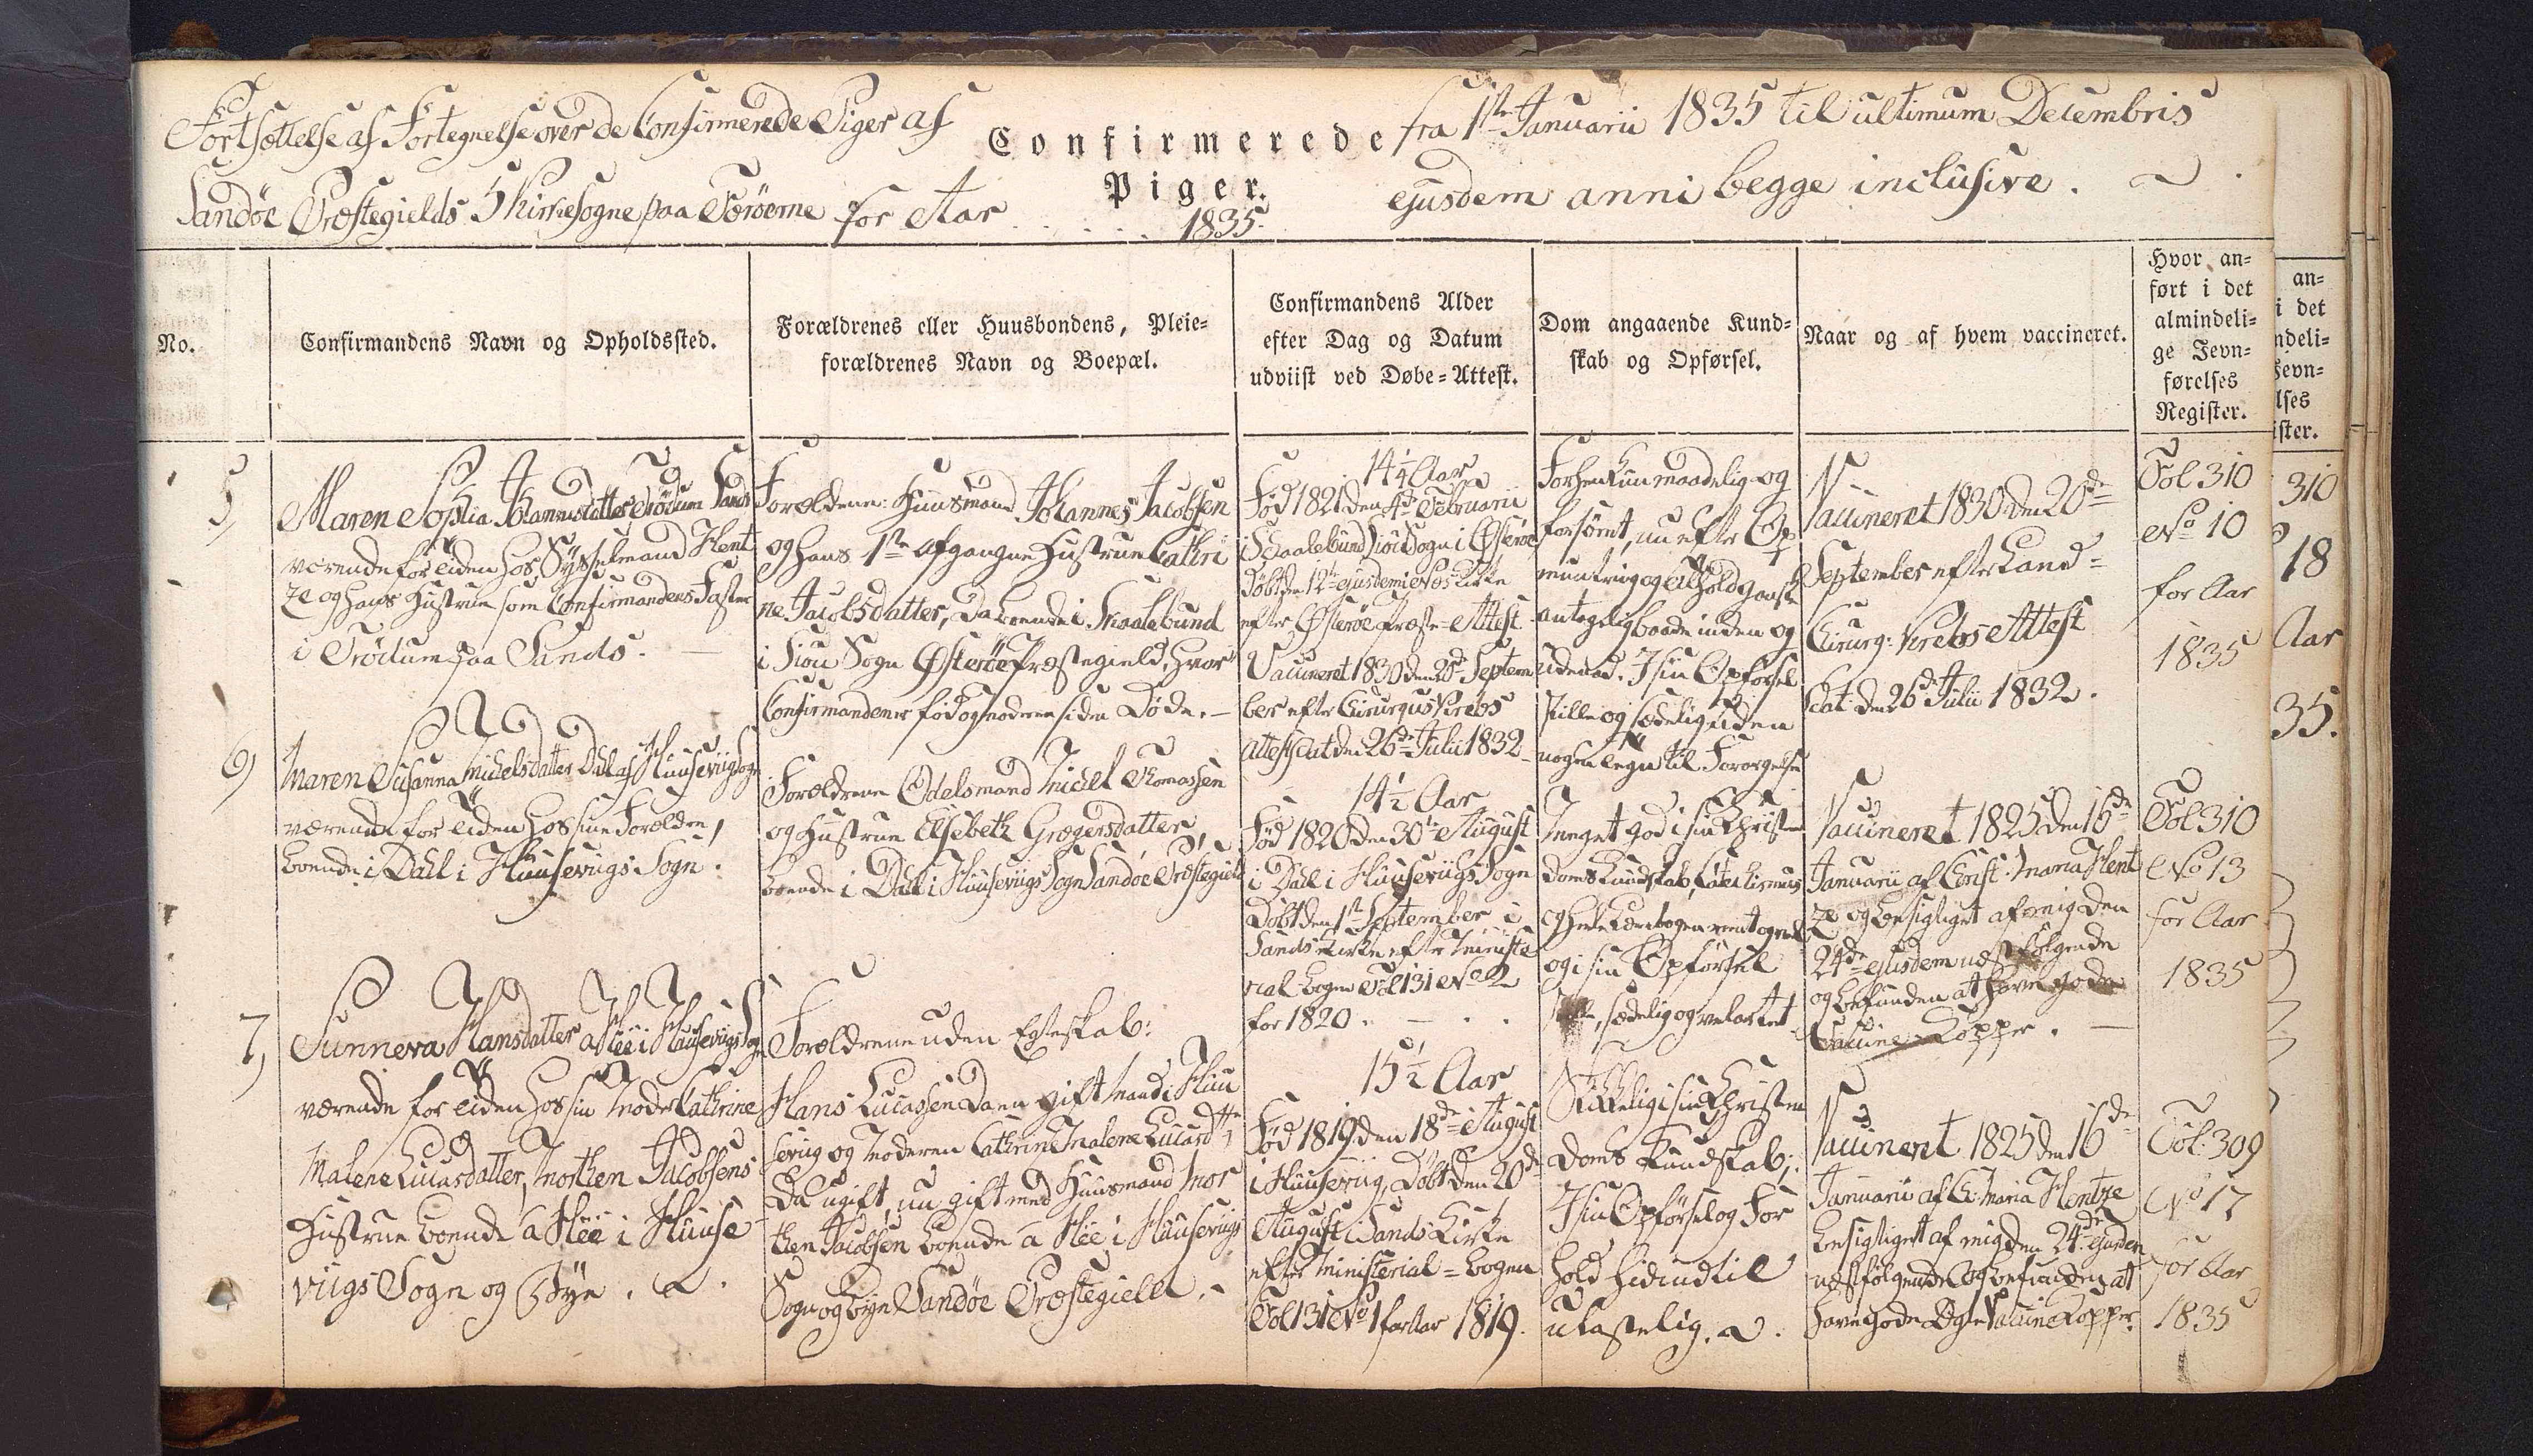 Fortsættelse af Fortegnelse over de Confirmerede Piger af
Sandöe Præstegields 5 Kirkesogne paa Færöerne for Aar
Confirmerede
Piger.
1835.
fra 1ste Januarii 1835 til ultimum Decembris
ejusdem anni begge inclusive.
No.
Confirmandens Navn og Opholdssted.
Forældrenes eller Huusbondens, Pleie=
forældrenes Navn og Boepæl.
Confirmandens Alder
efter Dag og Datum
udviist ved Døbe=Attest.
Dom angaaende Kund=
skab og Opførsel.
Naar og af hvem vaccineret.
Hvor an=
ført i det
almindeli=
ge Jevn=
førelses
Register.
an=
i det
ndeli=
Jevn=
lses
ister.
5,
Maren Sophia Johannesdatter Trödum Sands
værende for tiden hos Sysselmand Hent
ze og hans Hustrue som Confirmandens Faster
i Trödum paa Sands.
Forældrene: Huusmand Johannes Jacobsen
og hans 1ste afgangne Hustrue Cathri
ne Jacobsdatter, da boende i Skaalebund
i Siou Sogn Østeröe Præstegield, hvor
Confirmanden er föd og moderen siden döde.
14¼ Aar
Föd 1821 den 4de Februarii
i Skaalebund Siou Sogn i Østeröe
Döbt den 12te ejusdem i Næs Kirke
efter Østeröe Præste=Attest
Vaccineret 1830 den 20de Septem
ber efter Chirurgus Krebs
Attest dat den 26de Julii 1832
Forhen kun maadelig og
forsömt, nu efter Op
muntring og tilhold ganske
antagelig baade inden og
udenad. I sin Opförsel
stille og sædelig uden
nogen tegn til Forargelse
Vaccineret 1830 den 20de
September efter Land=
Chirurg: Krebs Attest
dat: den 26de Julii 1832.
Fol 310
No 10
for Aar
1835
310
18
Aar
35.
6)
Maren Susanna Michelsdatter Dahl af Huuseviigs Sogn
værende for tiden hos sine Forældre,
boende i Dahl i Huusevugs Sogn.
Forældrene Odelsmand Michel Thomassen
og Hustrue Elsebeth Grægersdatter,
boende i Dahl i Huusevigs Sogn Sandöe Præstegield
14½ Aar
Föd 1820 den 30te August
i Dahl i Huusevigs Sogn
Döbt den 1ste September i
Sands Kirke efter Ministe
rial-bogen Fol 131 No 2
for 1820.
Meget god i sin Christen
doms Kundskab, Catechismus
og hele Lærebogen rent og vel
og i sin Opförsel
sædelig og velartet
Vaccineret 1825 den 16de
Januarii af Christ. Maria Hent
ze og besigtiget af mig den
24de ejusdem næstfölgende
og befunden at have gode
Vaccine-Kopper.
Fol 310
No 13
for Aar
1835
7,
Sunneva Hansdatter a Heë i Huusevigs Sogn
værende for tiden hos sin Moder Cathrine
Malene Lucasdatter, Morthen Jacobsens
Hustrue boende a Heë i Huuse
viigs Sogn og Bye.
Forældrene uden Egteskab:
Hans Lucassen da en gift Mand i Huu
sevig og Moderen Cathrine Malene Lucasdttr,
da ugift, nu gift med Huusmand Mor
then Jacobsen boende a Heë i Huusevugs
Sogn og Bye Sandöe Præstegield.
15½ Aar
Föd 1819 den 18de August
i Huusevug, Döbt den 20de
August i Sands Kirke
efter Ministerial=bogen
Fol 131 No 1 for Aar 1819.
Skikkelig i sin Christen
doms Kundskab;
I sin Opförsel og For
hold hidindtil
ulastelig.
Vaccineret 1825 den 16de
Januarii af Ch: Maria Hentze
besigtiget af mig den 24de ejusdem
næstfölgende og befunden at
have gode ægte Vaccine Kopper.
Fol. 309
No 17
for Aar
1835